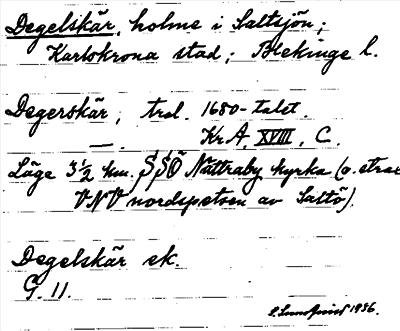 Degelskär, holme i Saltsjön;
Karlskrona stad; Blekinge l.
Degerskär, trol. 1680-talet.
—. Kr A, XVIII, C.
Läge 3½ km. SSÖ Nättraby kyrka (o. strax
VNV nordspetsen av Saltö).
Degelskär ek.
G. 11.
S. Lundqvist 1936.